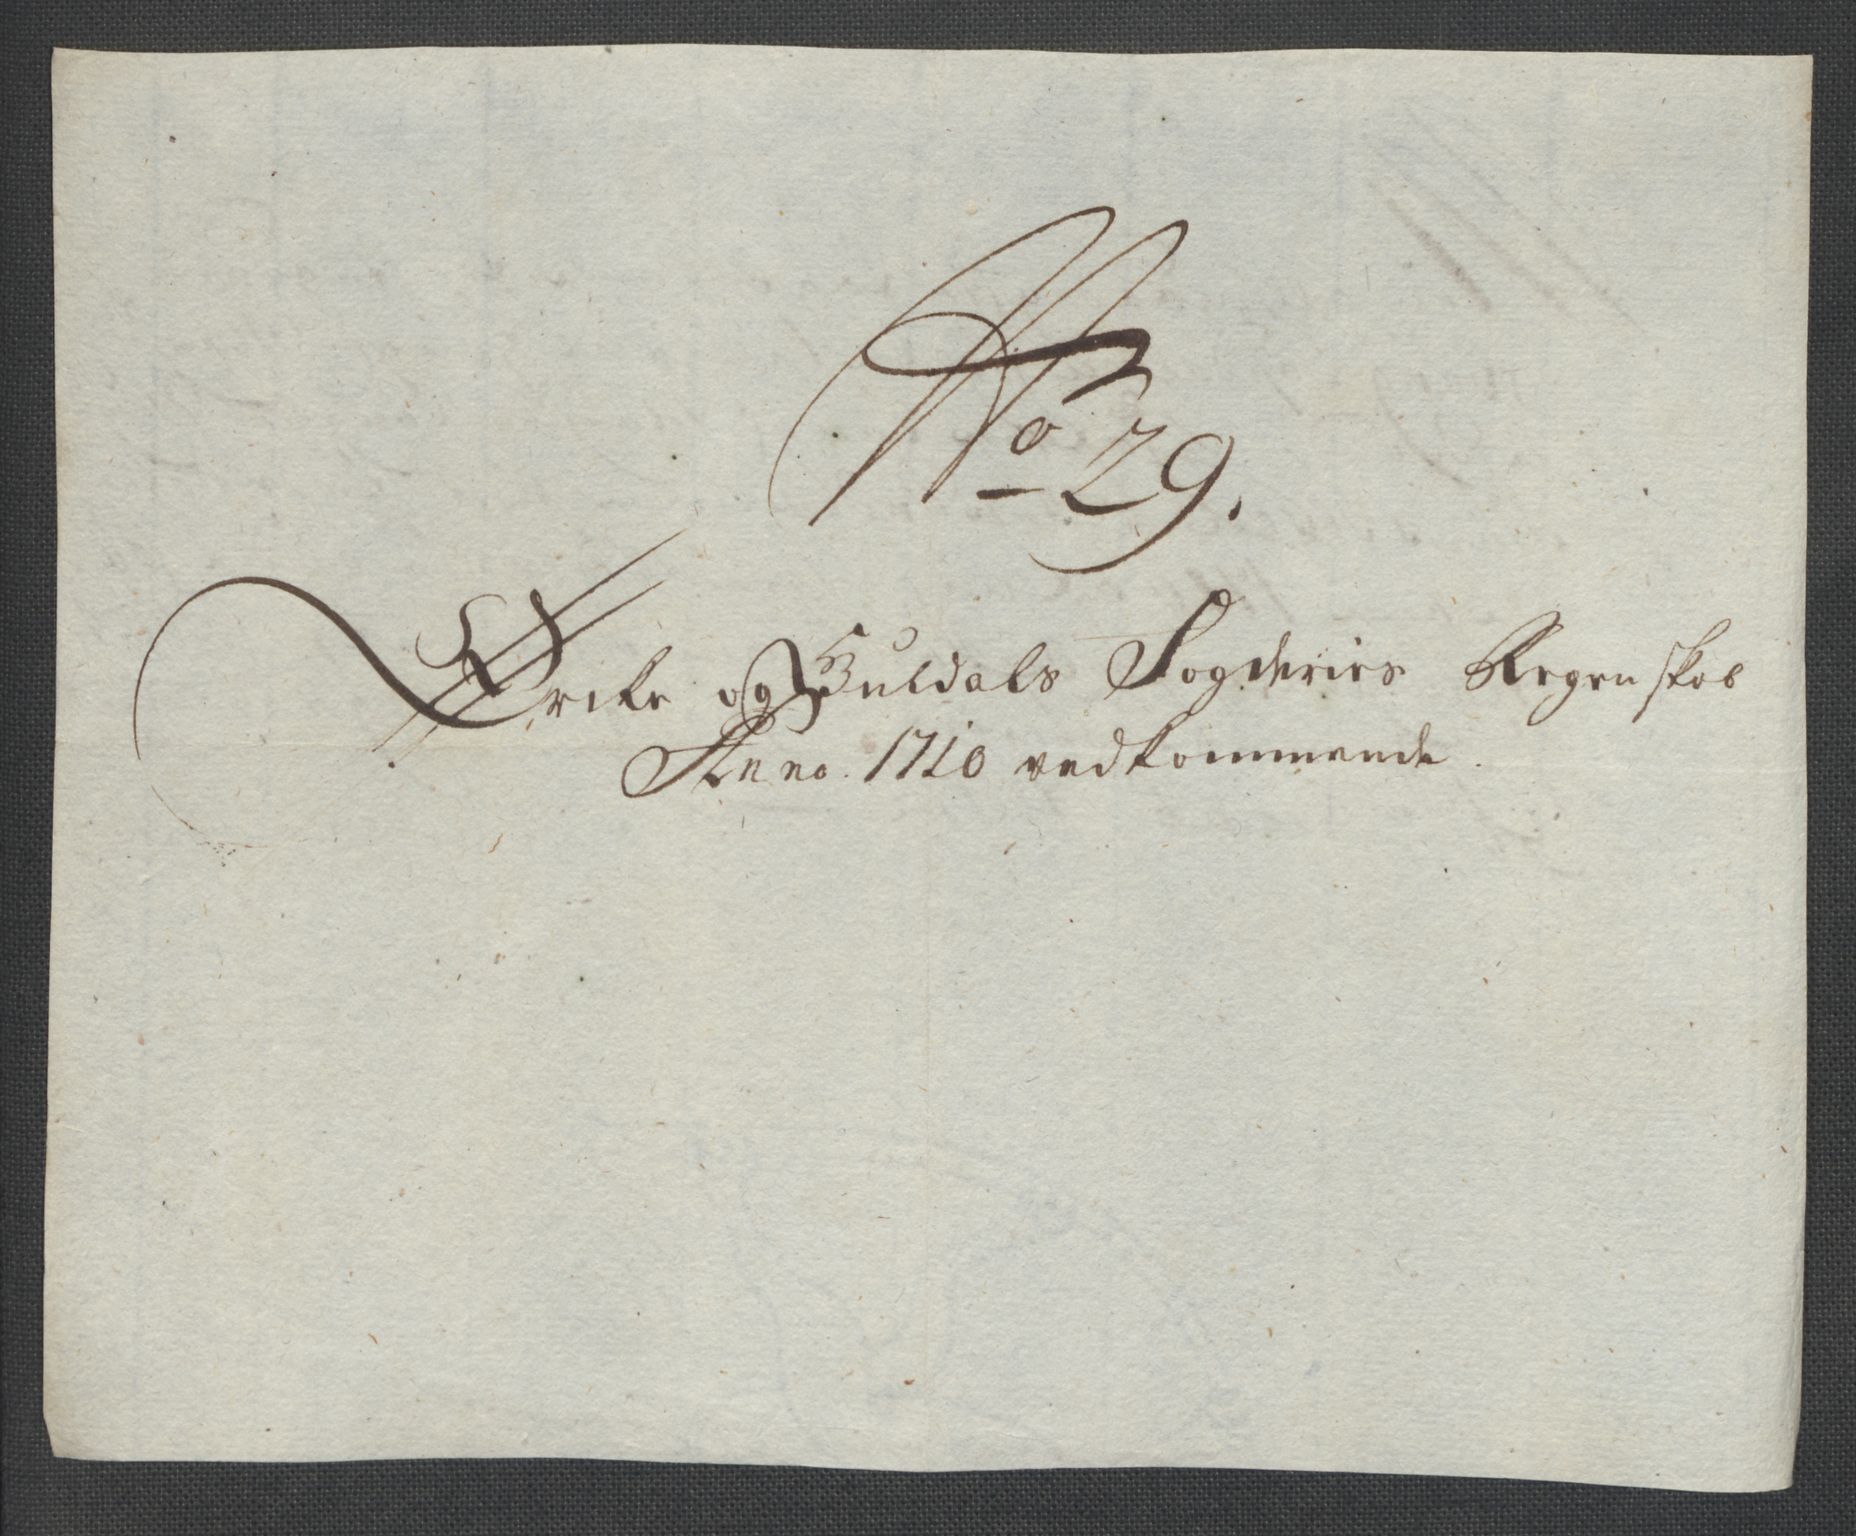 No 29.
Ørcke og Guldals Fogderies Regenskob
Anno. 1710 vedkommende.